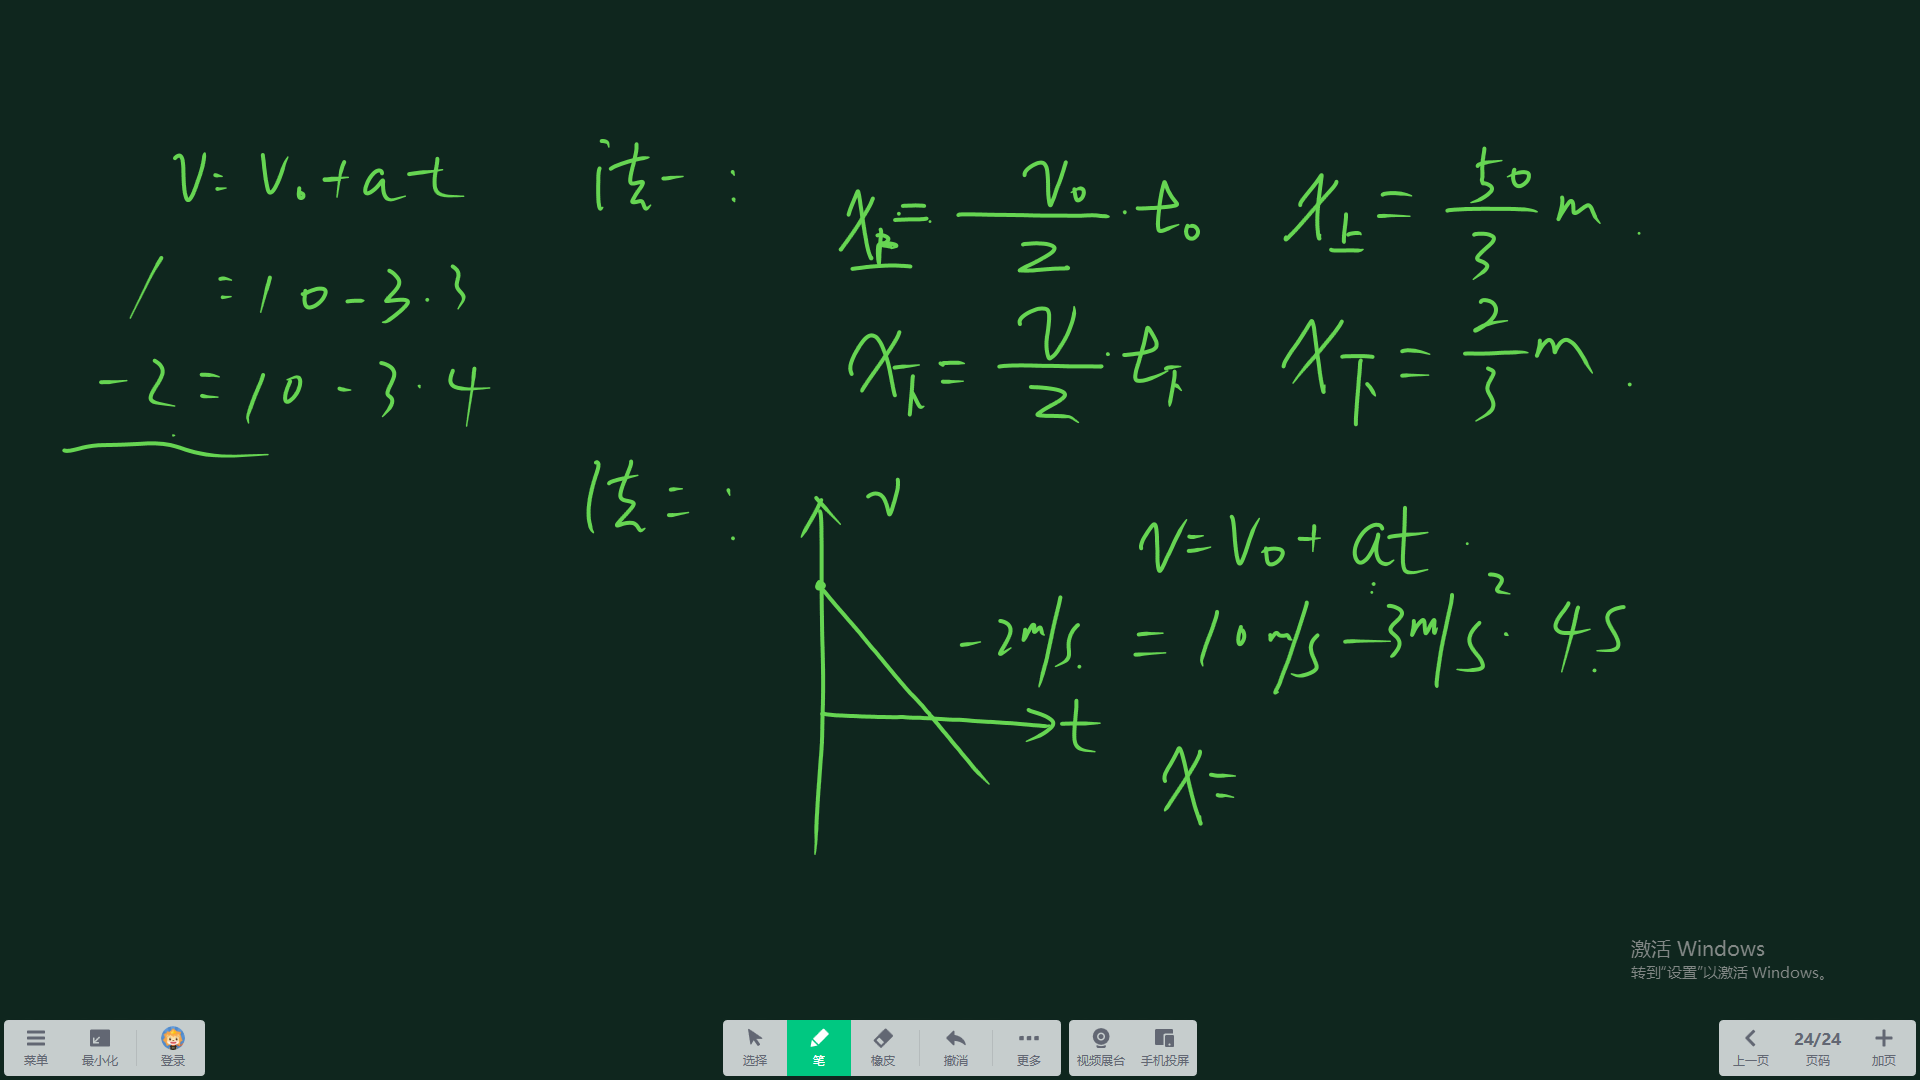 v = v₀ + at
1 = 10 - 3·3
-2 = 10 - 3·4
法一：
x上 = v₀/2 · t₀
x上 = 50/3 m.
x下 = v/2 · t下
x下 = 2/3 m.
法二：
v
t
v = v₀ + at.
-2m/s. = 10m/s - 3m/s²· 4s.
x =
激活 Windows
转到"设置"以激活 Windows。
菜单
最小化
登录
选择
笔
橡皮
撤消
更多
视频展台
手机投屏
上一页
24/24
页码
加页